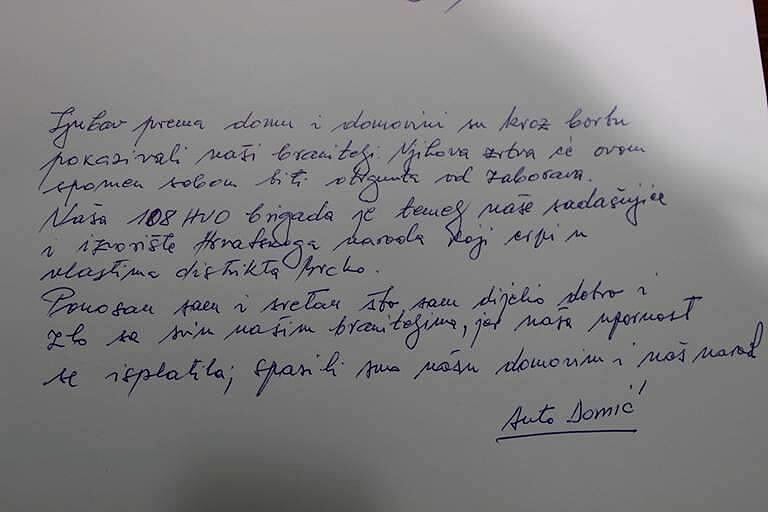 Ljubav prema domu i domovini su kroz borbu
pokazivali naši branitelji. Njihova žrtva će ovom
spomen sobom biti otrgnuta od zaborava.
Naša 108 HVO brigada je temelj naše sadašnjice
i izvorište Hrvatskoga naroda koji crpi u
vlastima distrikta Brcko.
Ponosan sam i sretan što sam dijelio dobro i
zlo sa svim našim braniteljima, jer naša upornost
se isplatila; spasili smo našu domovinu i naš narod
Anto Domić